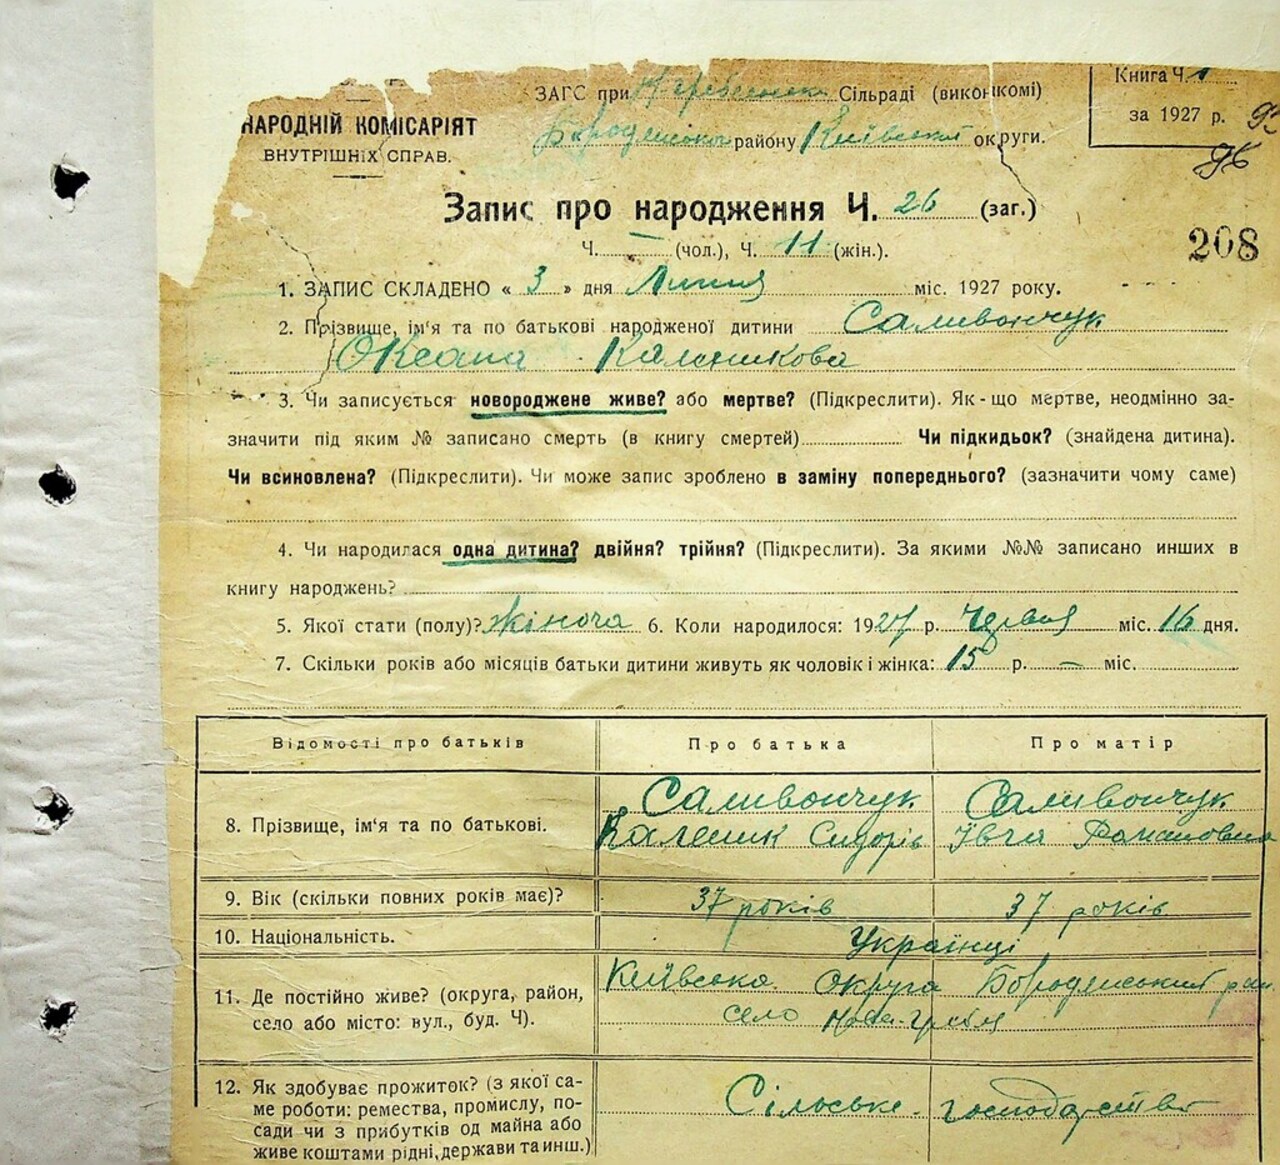 ЗАГС при Н-Гребельск. Сільраді (виконкомі)
Книга Ч. 1
НАРОДНІЙ КОМІСАРІЯТ
ВНУТРІШНІХ СПРАВ.
Бородянського району Київської округи.
за 1927 р.
96
Запис про народження Ч. 26 (заг.)
208
Ч. — (чол.), Ч. 11 (жін.).
1. ЗАПИС СКЛАДЕНО « 3 » дня Липня міс. 1927 року.
2. Прізвище, ім'я та по батькові народженої дитини Саливончук
Оксана Каленикова
3. Чи записується новороджене живе? або мертве? (Підкреслити). Як-що мертве, неодмінно за-
значити під яким № записано смерть (в книгу смертей) Чи підкидьок? (знайдена дитина).
Чи всиновлена? (Підкреслити). Чи може запис зроблено в заміну попереднього? (зазначити чому саме)
4. Чи народилася одна дитина? двійня? трійня? (Підкреслити). За якими №№ записано инших в
книгу народжень?
5. Якої стати (полу)? жіноча 6. Коли народилося: 1927 р. Червня міс. 16 дня.
7. Скільки років або місяців батьки дитини живуть як чоловік і жінка: 15 р. — міс.
Відомості про батьків Про батька Про матір
8. Прізвище, ім'я та по батькові.
Саливончук
Каленик Сидорів
Саливончук
Ївга Романовна
9. Вік (скільки повних років має)? 37 років 37 років
10. Національність. Українці
11. Де постійно живе? (округа, район,
село або місто: вул., буд. Ч).
Київська Округа Бородянський рай.
село Нова-Гребля
12. Як здобуває прожиток? (з якої са-
ме роботи: ремества, промислу, по-
сади чи з прибутків од майна або
живе коштами рідні, держави та инш.)
Сільське-господарство